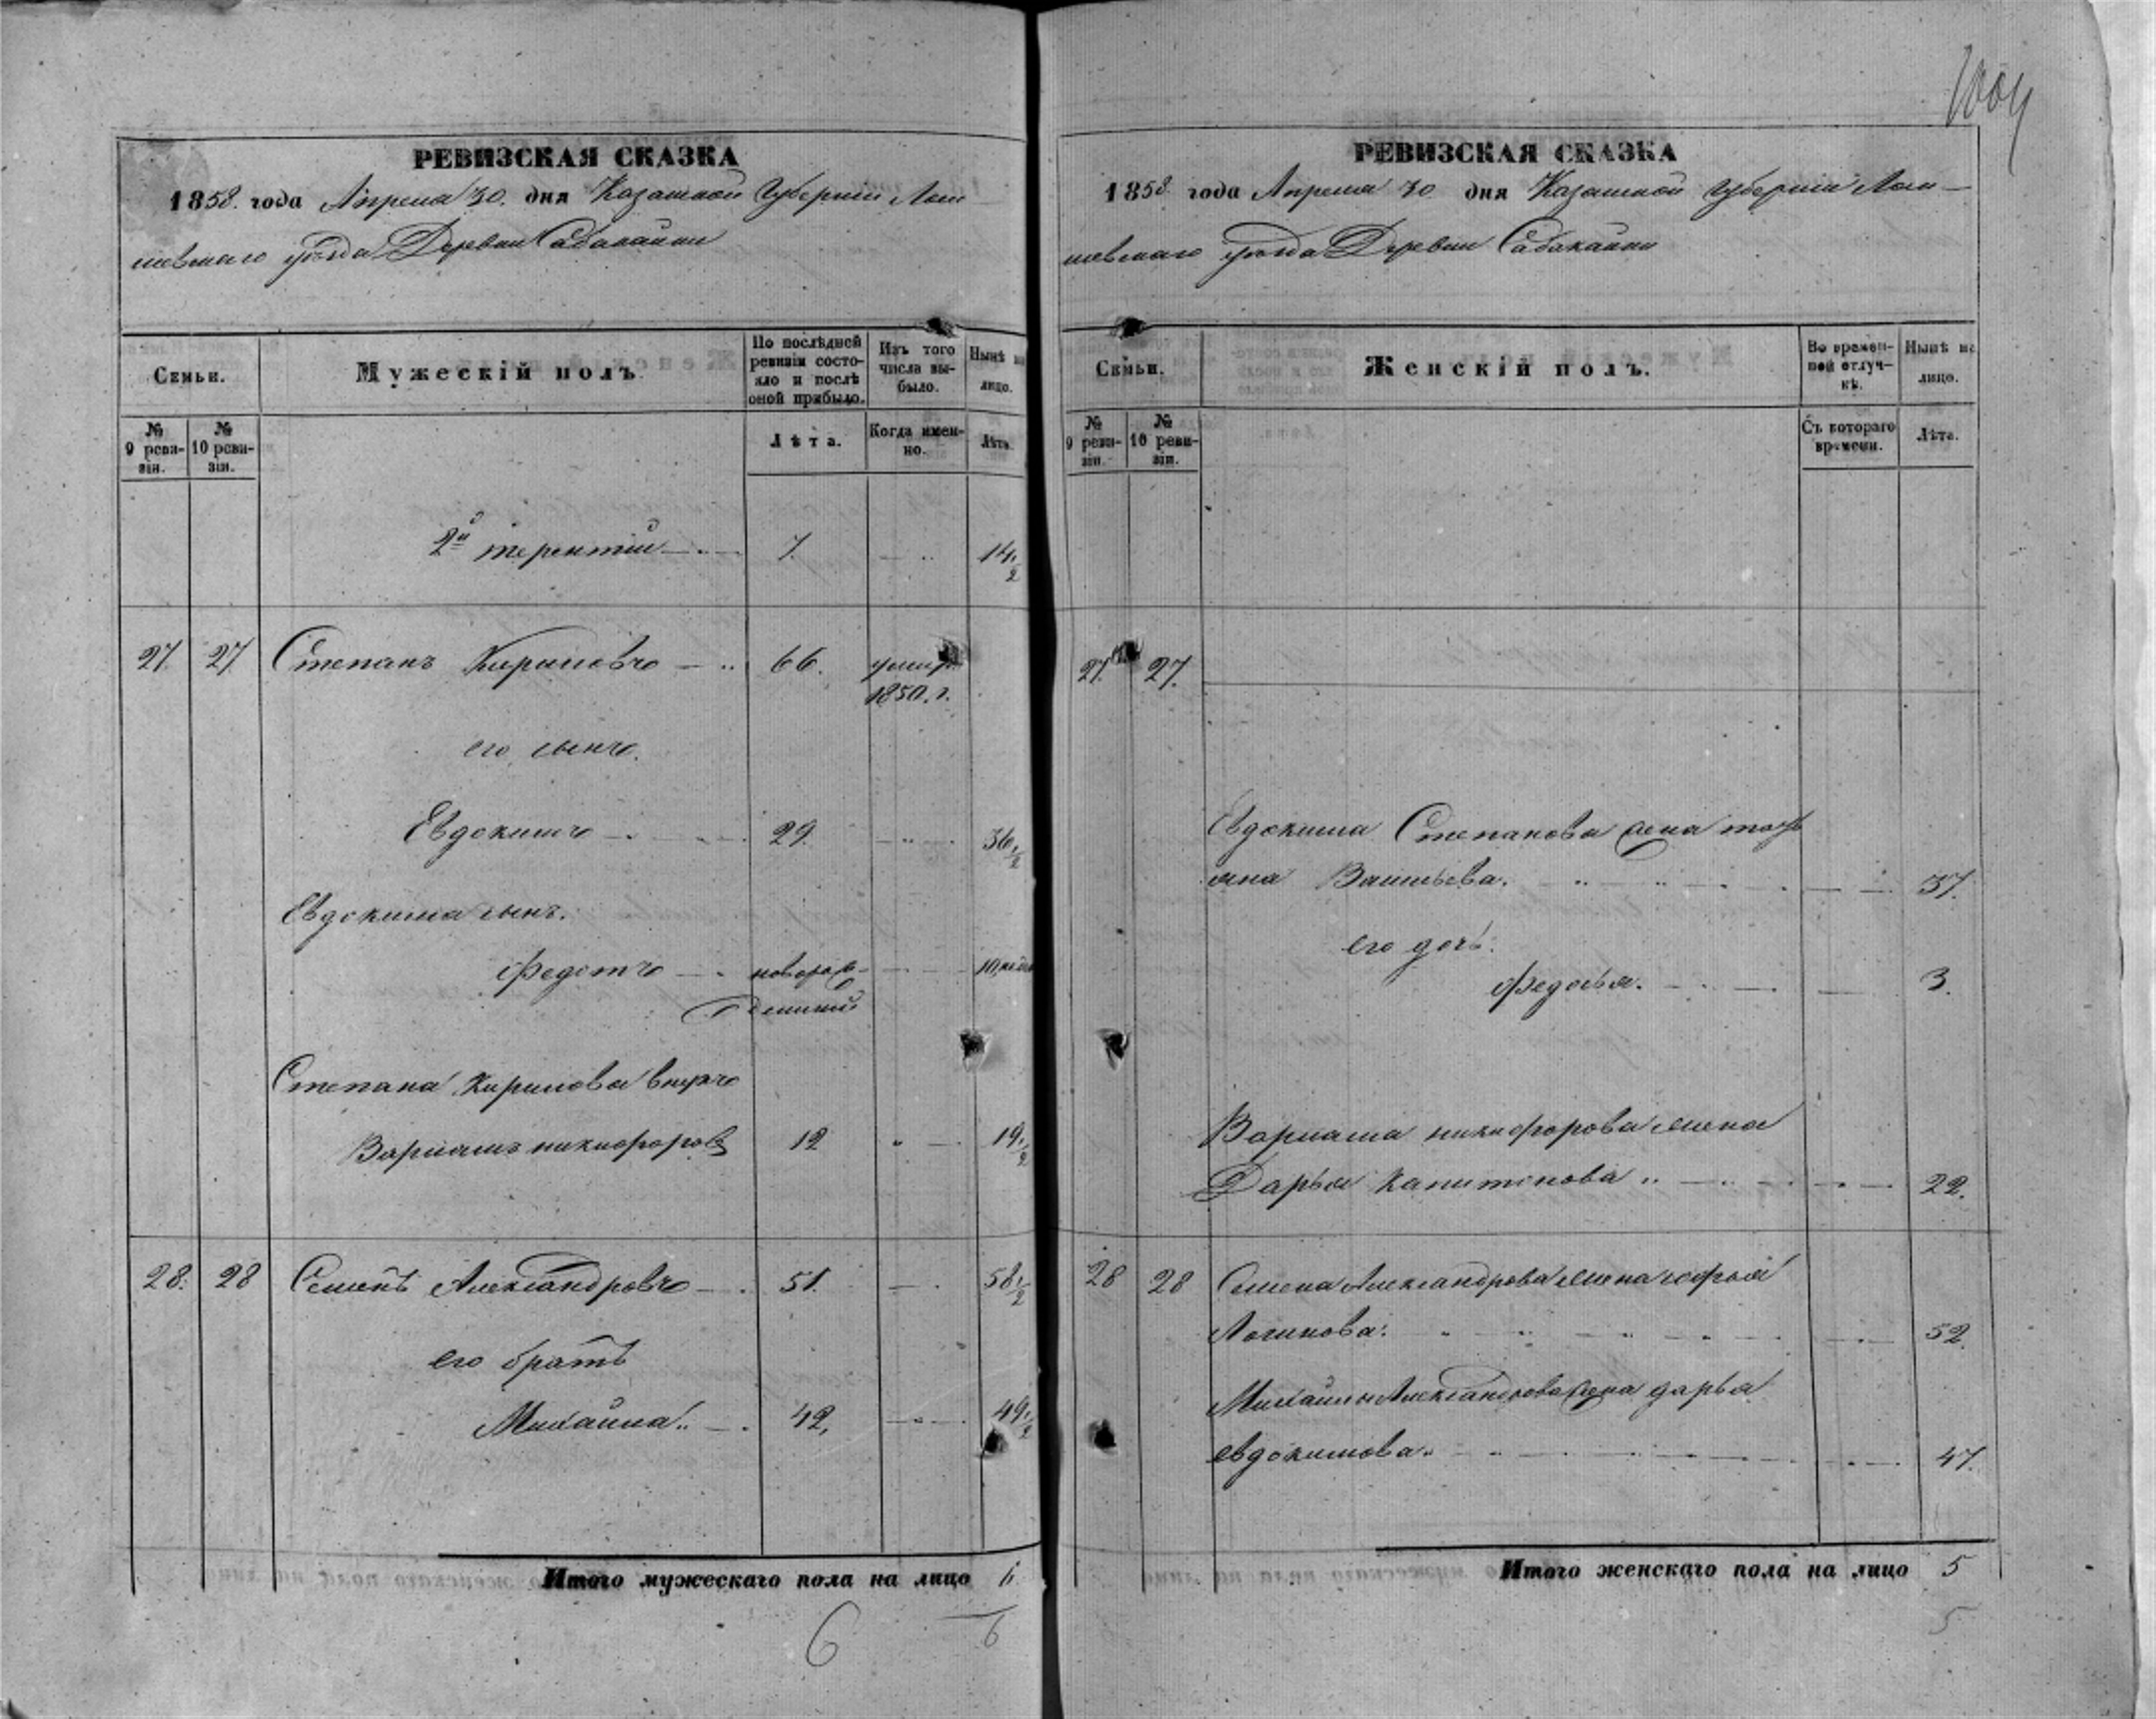 1004
РЕВИЗСКАЯ СКАЗКА
1858. года Апреля 30. дня Казанской Губернии Лаи
шевскаго уѣзда Деревни Сабакайки
Семьи.
Мужескій полъ
По послѣдней ревизіи состояло и послѣ оной прибыло.
Изъ того числа выбыло.
Нынѣ на лицо.
№ 9 ревизіи.
№ 10 ревизіи.
Лѣта.
Когда именно.
Лѣта.
2й терентий 7. 14 1/2
27. 27 Степанъ Кириловъ 66. умир. 1850. г.
его сынъ.
Евдокимъ 29. 36 1/2
Евдокима сынъ.
Федотъ новорож-
денный 10 недѣл
Степана Кирилова внукъ
Варламъ никифоровъ 12 19 1/2
28. 28 Семенъ Александровъ 51. 58 1/2
его братъ
Михайла 42, 49 1/2
Итого мужескаго пола на лицо 6
6 6
РЕВИЗСКАЯ СКАЗКА
1858 года Апреля 30 дня Казанской Губернии Лаи-
шевскаго уѣзда Деревни Сабакайки
Семьи.
Женскій полъ.
Во временной отлучкѣ.
Нынѣ на лицо.
№ 9 ревизіи.
№ 10 ревизіи.
Съ котораго времени.
Лѣта.
27. 27.
Евдокима Степанова жена тать
яна Васильева. 37.
его дочь.
Федосья. 3.
Варлама никифорова жена
Дарья Капитонова 22.
28 28 Семена Александрова жена софья
Логинова. 52.
Михайлы Александрова жена дарья
евдокимова 47.
Итого женскаго пола на лицо 5
5